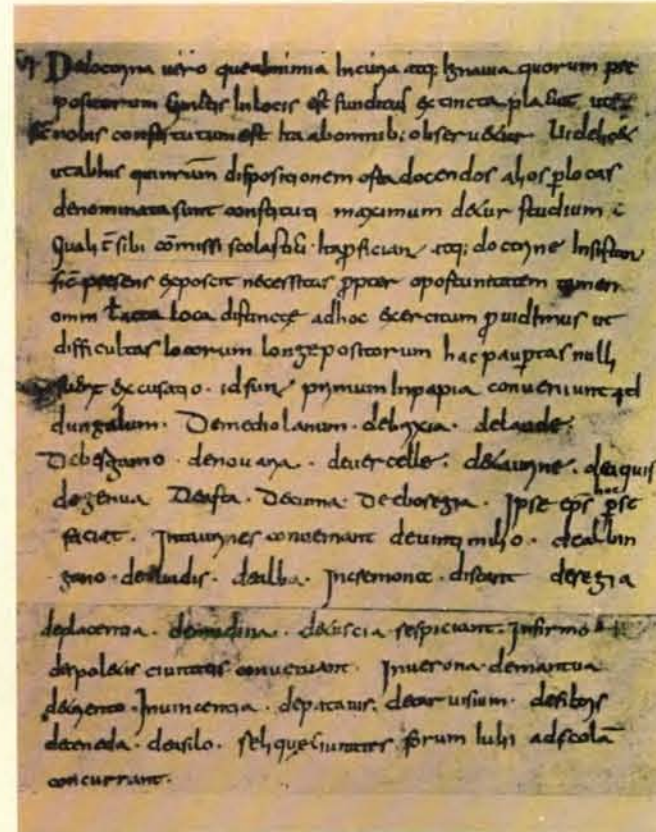 VI De doctrina vero que abnimia Incuria atq; Ignavia quorum pre
positorum cunctis Inlocis est funditus extincta placuit ut
nobis constitutum est Ita abomnib; observetur. Videlicet
utabhis dispositionem docendos alios p locas
denominata sunt constituti maximum detur studium
Qualit sibi comissi scolastici Ita pficiant atq; doctrine Insistant
sic presens exposcit necessitas ppter oportunitatem tamen
omni loca distincte adhoc exercitum pvidimus ut
difficultas locorum longepositorum hac paupertas nulli
fueret excusatio. id sunt primum Inpapia conveniunt ad
dungalum. Demediolanum. debrixia. delaude.
Debergamo. denovaria. devercelle. deaquis
degenua Deasta. Decuma. Ipse eps hoc pse
faciat. Intaurines conveniant deuintimilio. dealbin
gano. devadis. dealba. Incremona. discant deregia
deplacentia. demudina. detuscia respiciant. Infirmo
despolecis civitatis conveniant. Inverona. demantua
detrento. Invincencia. depatavis. detarvisium. defiltris
deceneda. deasilo. reliqueciuitates forum Iulii adscolā
concurrant.